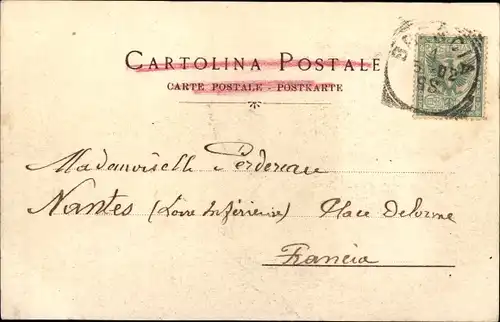 CARTOLINA POSTALE
CARTE POSTALE - POSTKARTE
Mademoiselle Perdereau
Nantes (Loire Inférieure) Place Delorme
Francia